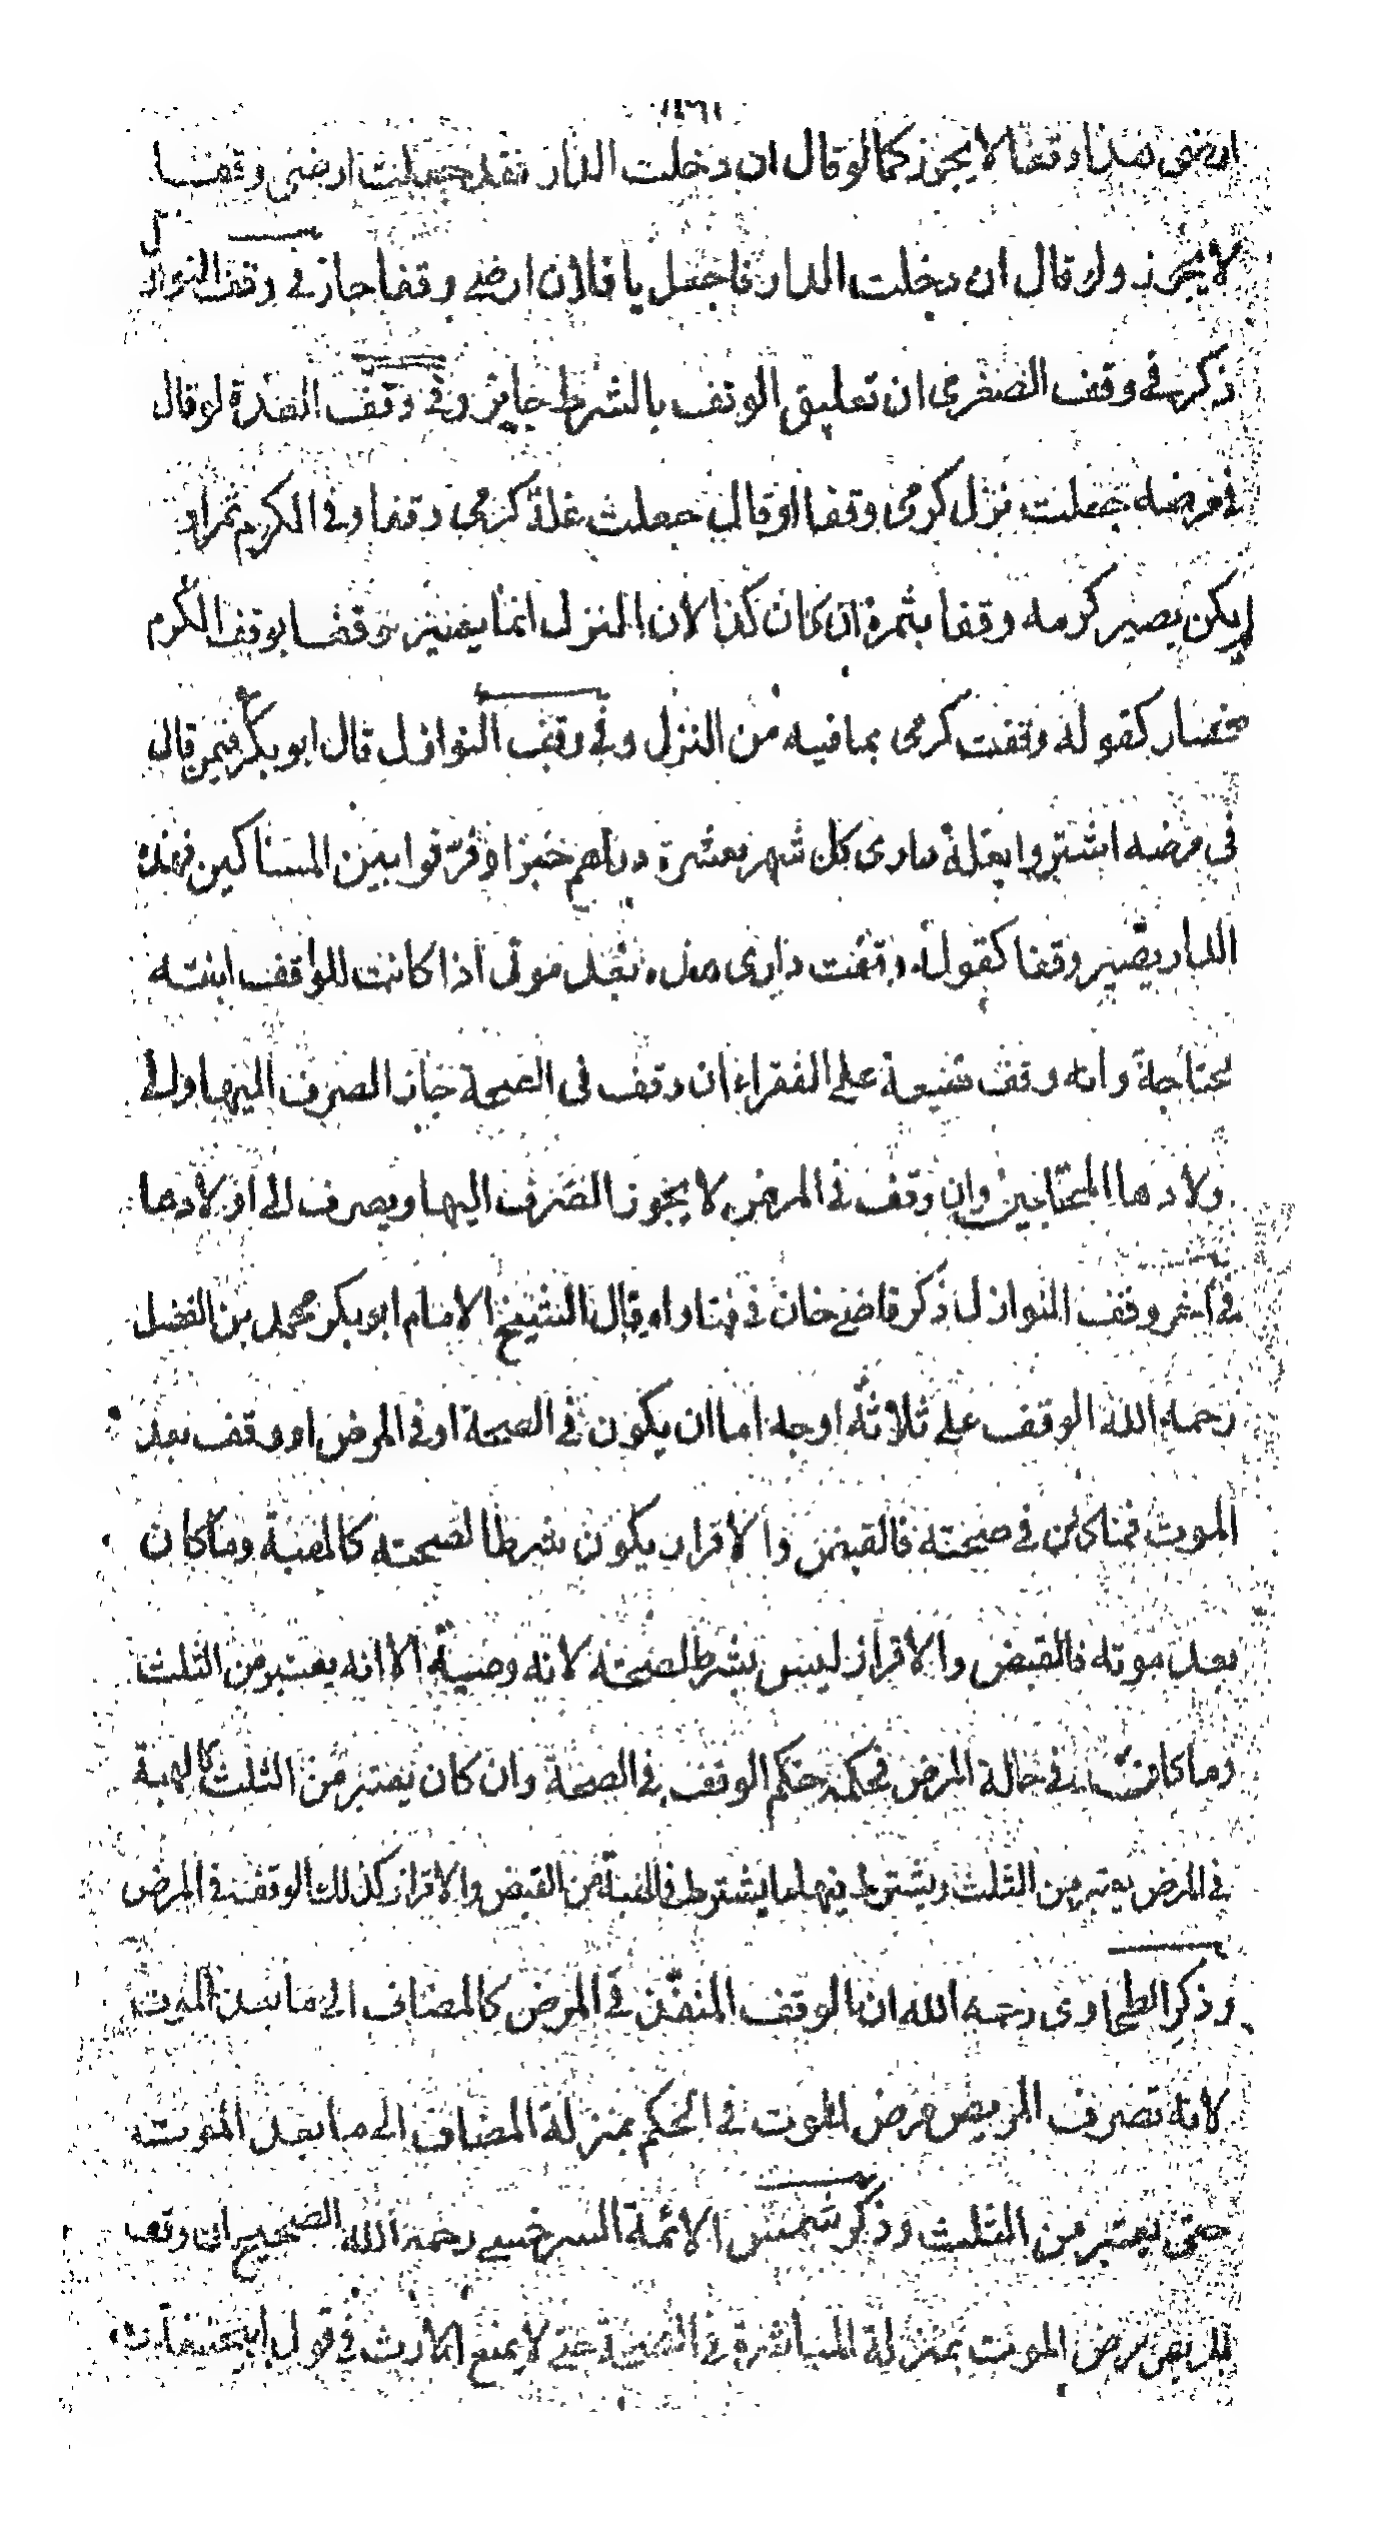 ارضى هذا وقفا لا يجوز كما لو قال ان دخلت الدار فقد جعلت ارضى وقفا
لا يجوز ولو قال ان دخلت الدار فاجعل يا فلان ارضى وقفا جاز فى وقف النوازل
ذكر فى وقف الصغرى ان تعليق الوقف بالشرط جايز وفى وقف العدة لو قال
فى مرضه جعلت نزل كرمى وقفا او قال جعلت غلة كرمى وقفا وفى الكرم ثمر او
لم يكن يصير كرمه وقفا بثمرة ان كان كذا لان النزل انما يصير وقفا بوقف الكرم
فصار كقوله وقفت كرمى بما فيه من النزل وفى وقف النوازل قال ابو بكر فيمن قال
فى مرضه اشتروا بغلة دارى كل شهر بعشرة دراهم خبزا وفرقوا بين المساكين فهذه
الدار يصير وقفا كقوله وقفت دارى هذه بعد موتى اذا كانت للواقف ابنته
محتاجة وانه وقف ضيعة على الفقراء ان وقف فى الصحة جاز الصرف اليها والى
ولادها المحتاجين وان وقف فى المرض لا يجوز الصرف اليها ويصرف الى اولادها
فى اخر وقف النوازل ذكر قاضى خان فى فتاواه قال الشيخ الامام ابو بكر محمد بن الفضل
رحمه الله الوقف على ثلاثة اوجه اما ان يكون فى الصحة او فى المرض او وقف بعد
الموت فما كان فى صحته فالقبض والاقرار يكون شرطا لصحته كالهبة وما كان
بعد موته فالقبض والاقرار ليس بشرط لصحته لانه وصية الا انه يعتبر من الثلث
وما كان فى حالة المرض فحكمه حكم الوقف فى الصحة وان كان يعتبر من الثلث كالهبة
فى المرض يعتبر من الثلث ويشترط فيها ما يشترط فى الهبة من القبض والاقرار كذلك الوقف فى المرض
وذكر الطحاوى رحمه الله ان الوقف المنفذ فى المرض كالمضاف الى ما بعد الموت
لانه تصرف المريض مرض الموت فى الحكم بمنزلة المضاف الى ما بعد الموت
حتى يعتبر من الثلث وذكر شمس الائمة السرخسى رحمه الله الصحيح ان وقف
المريض مرض الموت بمنزلة المباشرة فى الصحة حتى لا يمنع الارث فى قول ابى حنيفة